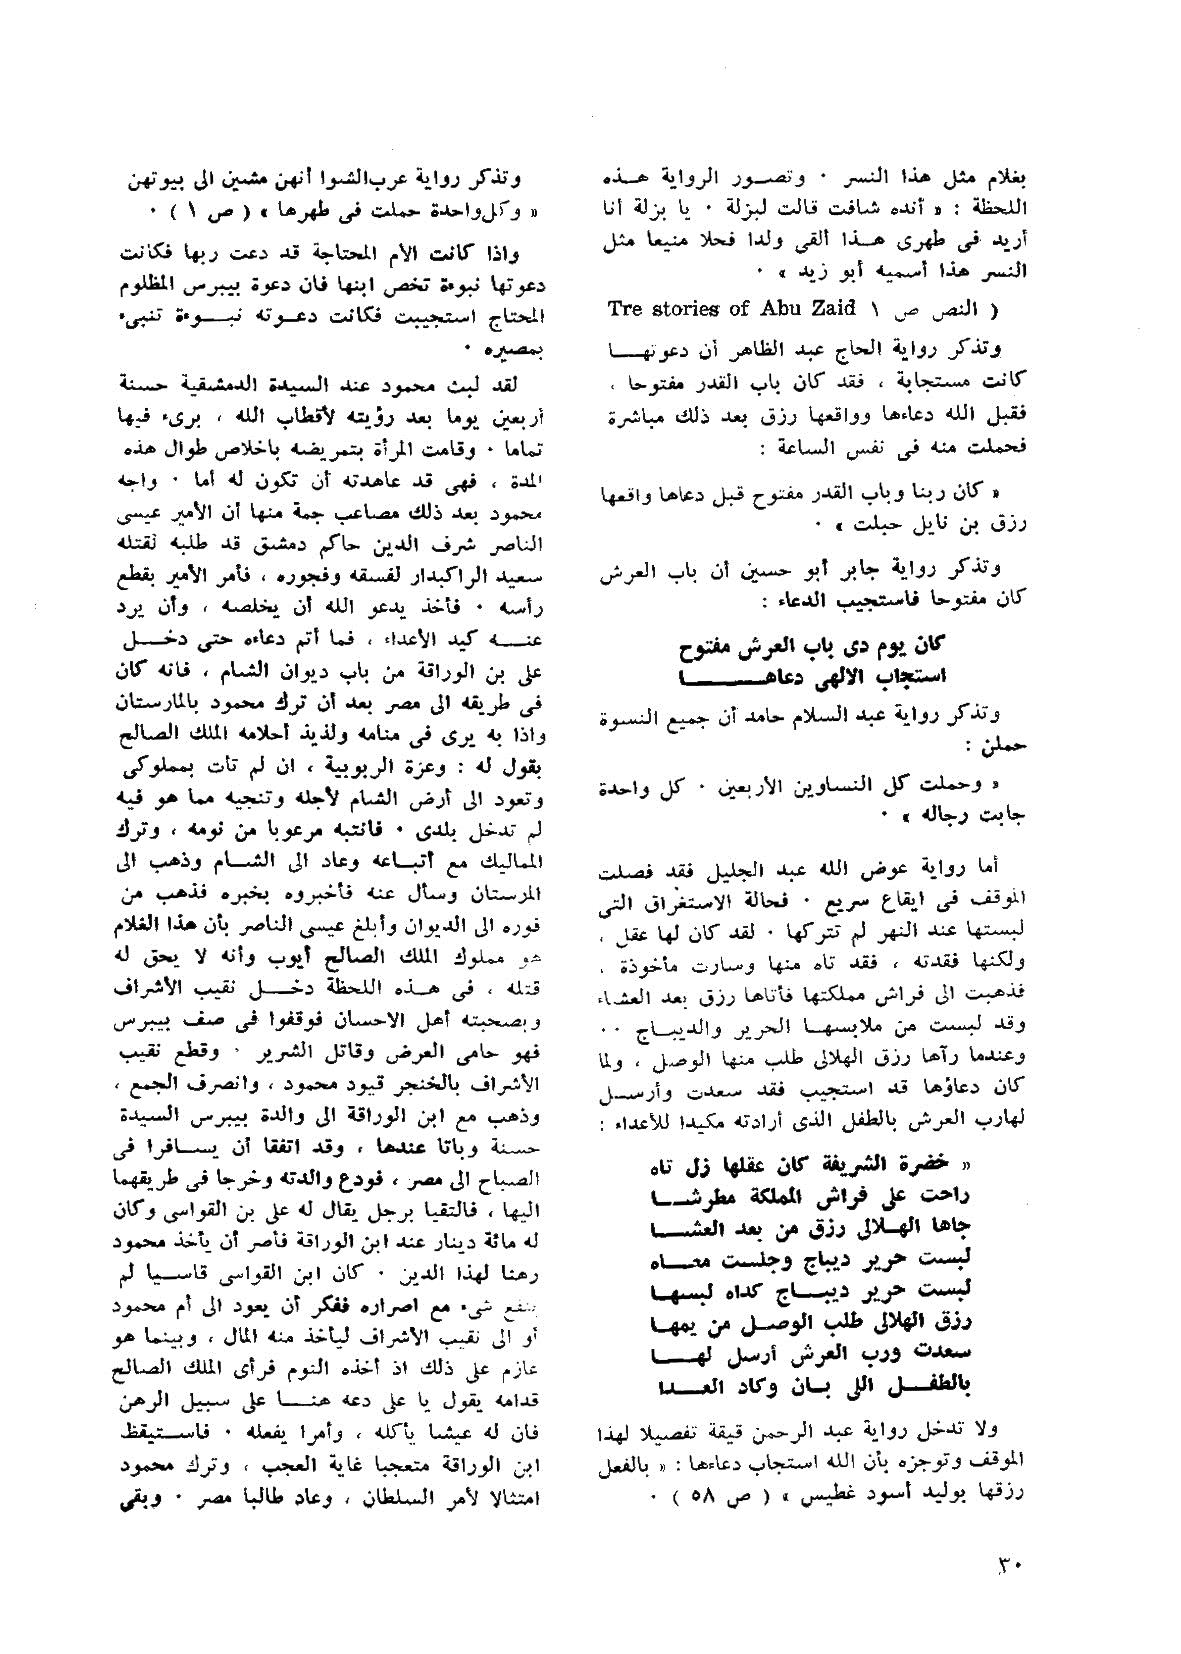 بغلام مثل هذا النسر ٠ وتصور الرواية هذه
اللحظة : « أنده شافت قالت لبزلة ٠ يا بزلة أنا
أريد فى طهرى هذا ألقى ولدا فحلا منيعا مثل
النسر هذا أسميه أبو زيد » ٠
( النص ص ١ Tre stories of Abu Zaid
وتذكر رواية الحاج عبد الظاهر أن دعوتها
كانت مستجابة ، فقد كان باب القدر مفتوحا ،
فقبل الله دعاءها وواقعها رزق بعد ذلك مباشرة
فحملت منه فى نفس الساعة :
« كان ربنا وباب القدر مفتوح قبل دعاها واقعها
رزق بن نايل حبلت » ٠
وتذكر رواية جابر أبو حسين أن باب العرش
كان مفتوحا فاستجيب الدعاء :
كان يوم دى باب العرش مفتوح
استجاب الالهى دعاها
وتذكر رواية عبد السلام حامد أن جميع النسوة
حملن :
« وحملت كل النساوين الأربعين ٠ كل واحدة
جابت رجاله » ٠
أما رواية عوض الله عبد الجليل فقد فصلت
الموقف فى ايقاع سريع ٠ فحالة الاستغراق التى
لبستها عند النهر لم تتركها ٠ لقد كان لها عقل ،
ولكنها فقدته ، فقد تاه منها وسارت مأخوذة ،
فذهبت الى فراش مملكتها فأتاها رزق بعد العشاء
وقد لبست من ملابسها الحرير والديباج ٠٠
وعندما رآها رزق الهلالى طلب منها الوصل ، ولما
كان دعاؤها قد استجيب فقد سعدت وأرسل
لهارب العرش بالطفل الذى أرادته مكيدا للأعداء :
« خضرة الشريفة كان عقلها زل تاه
راحت على فراش المملكة مطرشا
جاها الهلالى رزق من بعد العشا
لبست حرير ديباج وجلست معاه
لبست حرير ديباج كداه لبسها
رزق الهلالى طلب الوصل من يمها
سعدت ورب العرش أرسل لها
بالطفل اللى بان وكاد العدا
ولا تدخل رواية عبد الرحمن قيقة تفصيلا لهذا
الموقف وتوجزه بأن الله استجاب دعاءها : « بالفعل
رزقها بوليد أسود غطيس » ( ص ٥٨ ) ٠
وتذكر رواية عرب الشوا أنهن مشين الى بيوتهن
« وكل واحدة حملت فى طهرها » ( ص ١ ) ٠
واذا كانت الأم المحتاجة قد دعت ربها فكانت
دعوتها نبوءة تخص ابنها فان دعوة بيبرس المظلوم
المحتاج استجيبت فكانت دعوته نبوءة تنبىء
بمصيره ٠
لقد لبث محمود عند السيدة الدمشقية حسنة
أربعين يوما بعد رؤيته لأقطاب الله ، برىء فيها
تماما ٠ وقامت المرأة بتمريضه باخلاص طوال هذه
المدة ، فهى قد عاهدته أن تكون له أما ٠ واجه
محمود بعد ذلك مصاعب جمة منها أن الأمير عيسى
الناصر شرف الدين حاكم دمشق قد طلبه لقتله
سعيد الراكبدار لفسقه وفجوره ، فأمر الأمير بقطع
رأسه ٠ فأخذ يدعو الله أن يخلصه ، وأن يرد
عنه كيد الأعداء ، فما أتم دعاءه حتى دخل
على بن الوراقة من باب ديوان الشام ، فانه كان
فى طريقه الى مصر بعد أن ترك محمود بالمارستان
واذا به يرى فى منامه ولذيذ أحلامه الملك الصالح
يقول له : وعزة الربوبية ، ان لم تات بمملوكى
وتعود الى أرض الشام لأجله وتنجيه مما هو فيه
لم تدخل بلدى ٠ فانتبه مرعوبا من نومه ، وترك
المماليك مع أتباعه وعاد الى الشام وذهب الى
المرستان وسأل عنه فأخبروه بخبره فذهب من
فوره الى الديوان وأبلغ عيسى الناصر بأن هذا الغلام
هو مملوك الملك الصالح أيوب وأنه لا يحق له
قتله ، فى هذه اللحظة دخل نقيب الأشراف
وبصحبته أهل الاحسان فوقفوا فى صف بيبرس
فهو حامى العرض وقاتل الشرير ٠ وقطع نقيب
الأشراف بالخنجر قيود محمود ، وانصرف الجمع ،
وذهب مع ابن الوراقة الى والدة بيبرس السيدة
حسنة وباتا عندها ، وقد اتفقا أن يسافرا فى
الصباح الى مصر ، فودع والدته وخرجا فى طريقهما
اليها ، فالتقيا برجل يقال له على بن القواسى وكان
له مائة دينار عند ابن الوراقة فأصر أن يأخذ محمود
رهنا لهذا الدين ٠ كان ابن القواسى قاسيا لم
ينفع شىء مع اصراره ففكر أن يعود الى أم محمود
أو الى نقيب الأشراف ليأخذ منه المال ، وبينما هو
عازم على ذلك اذ أخذه النوم فرأى الملك الصالح
قدامه يقول يا على دعه هنا على سبيل الرهن
فان له عيشا يأكله ، وأمرا يفعله ٠ فاستيقظ
ابن الوراقة متعجبا غاية العجب ، وترك محمود
امتثالا لأمر السلطان ، وعاد طالبا مصر ٠ وبقى
٣٠